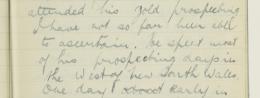 attended his gold prospecting
I have not so far been able
to ascertain. he spent most
of his prospecting days in
the West of New South Wales.
One day about early in